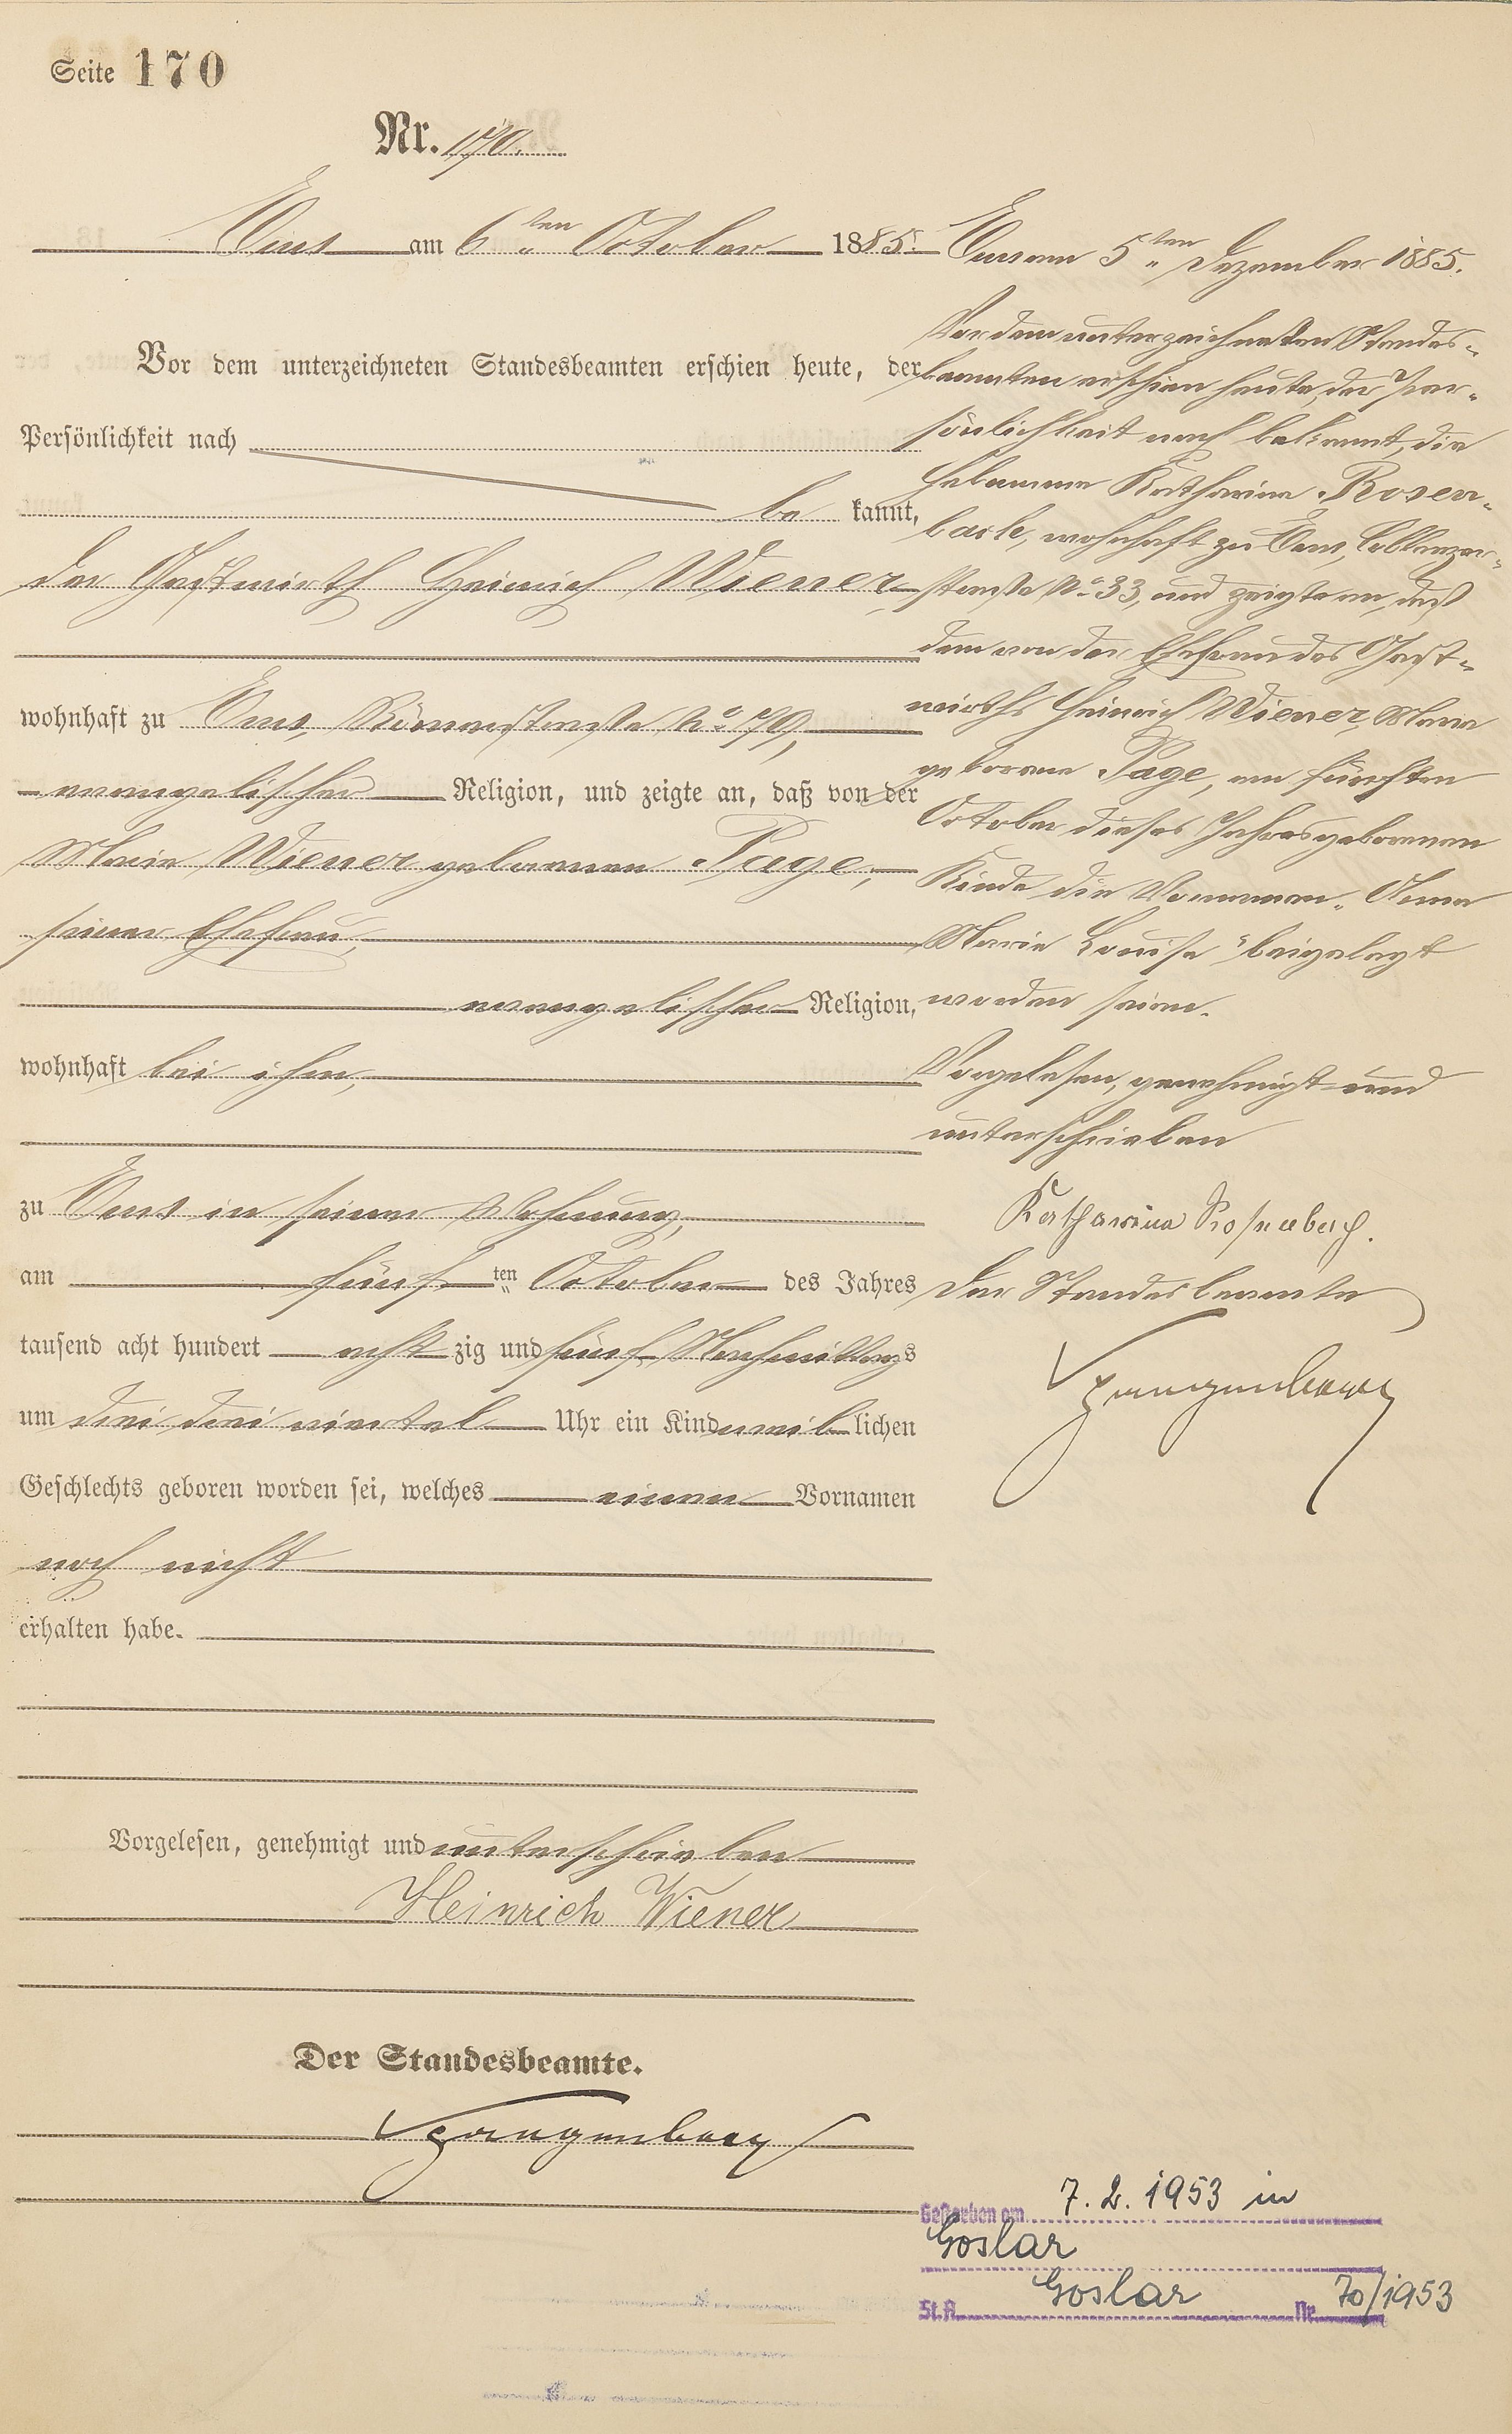 Seite 170
Nr. 170.
Ems am 6ten October 1885.
Vor dem unterzeichneten Standesbeamten erschien heute, der
Persönlichkeit nach
bekannt,
der Gastwirth Heinrich Wiener
wohnhaft zu Ems, Römerstraße No 70,
evangelischer Religion, und zeigte an, daß von der
Marie Wiener geborenen Page,
seiner Ehefrau,
evangelischer Religion,
wohnhaft bei ihm,
zu Ems in seiner Wohnung,
am fünften October des Jahres
tausend acht hundert achtzig und fünf Nachmittags
um drei drei viertel Uhr ein Kind weiblichen
Geschlechts geboren worden sei, welches einen Vornamen
noch nicht
erhalten habe.
Vorgelesen, genehmigt und unterschrieben
Heinrich Wiener
Der Standesbeamte.
Spangenberg
Ems am 5ten Dezember 1885.
Vor dem unterzeichneten Standes-
beamten erschien heute, der Per-
sönlichkeit nach bekannt, die
Hebamme Katharina Rosen-
bach, wohnhaft zu Ems, Coblenzer-
straße No 33, und zeigte an, daß
dem von der Ehefrau des Gast-
wirths Heinrich Wiener, Marie
geborene Page, am fünften
October dieses Jahres geborenen
Kinde die Vornamen „Anna
Marie Louise“ beigelegt
worden seien.
Vorgelesen, genehmigt und
unterschrieben
Katharina Rosenbach.
Der Standesbeamte
Spangenberg
Gestorben am 7. 2. 1953 in
Goslar
St. A. Goslar Nr. 70/1953